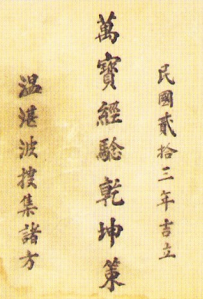 民國貳拾三年吉立
萬寶經驗乾坤策
温湛波搜集諸方